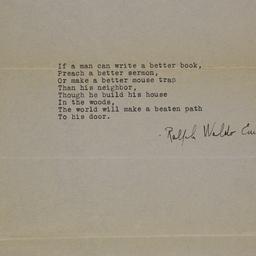 If a man can write a better book,
Preach a better sermon,
Or make a better mouse trap
Than his neighbor,
Though he build his house
In the woods,
The world will make a beaten path
To his door.
- Ralph Waldo